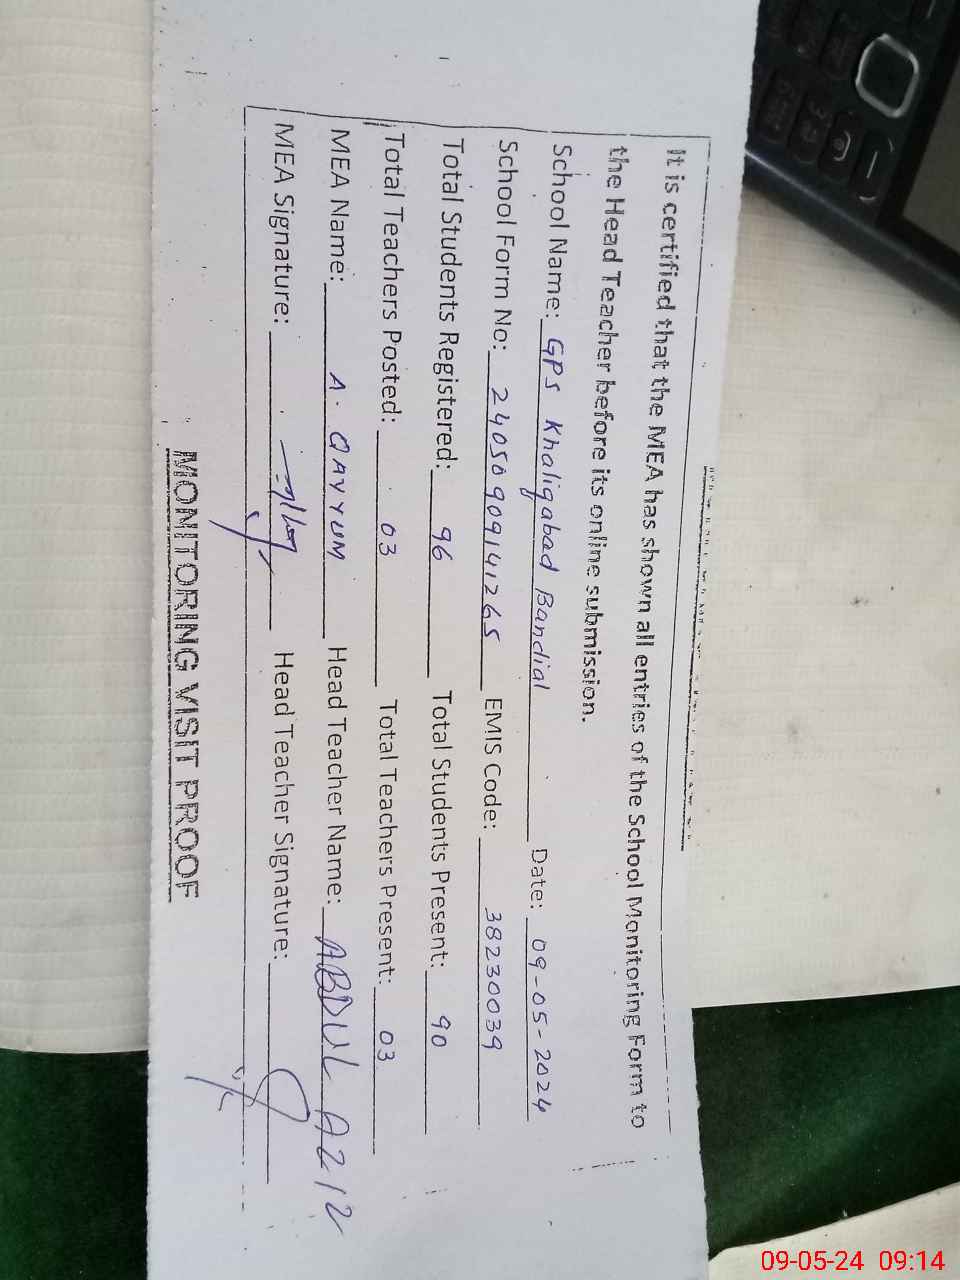 It is certified that the MEA has shown all entries of the School Monitoring Form to
the Head Teacher before its online submission.
School Name: GPS Khaliqabad Bandial Date: 09-05-2024
School Form No: 24050909141265 EMIS Code: 38230039
Total Students Registered: 96 Total Students Present: 90
Total Teachers Posted: 03 Total Teachers Present: 03
MEA Name: A. QAYYUM Head Teacher Name: ABDUL AZIZ
MEA Signature: Head Teacher Signature:
MONITORING VISIT PROOF
09-05-24 09:14